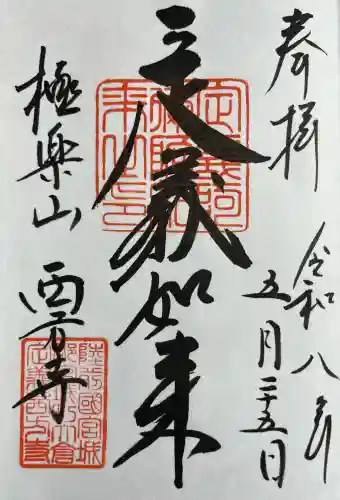 奉拝
令和八年
五月二十五日
定義如来
極楽山
西方寺